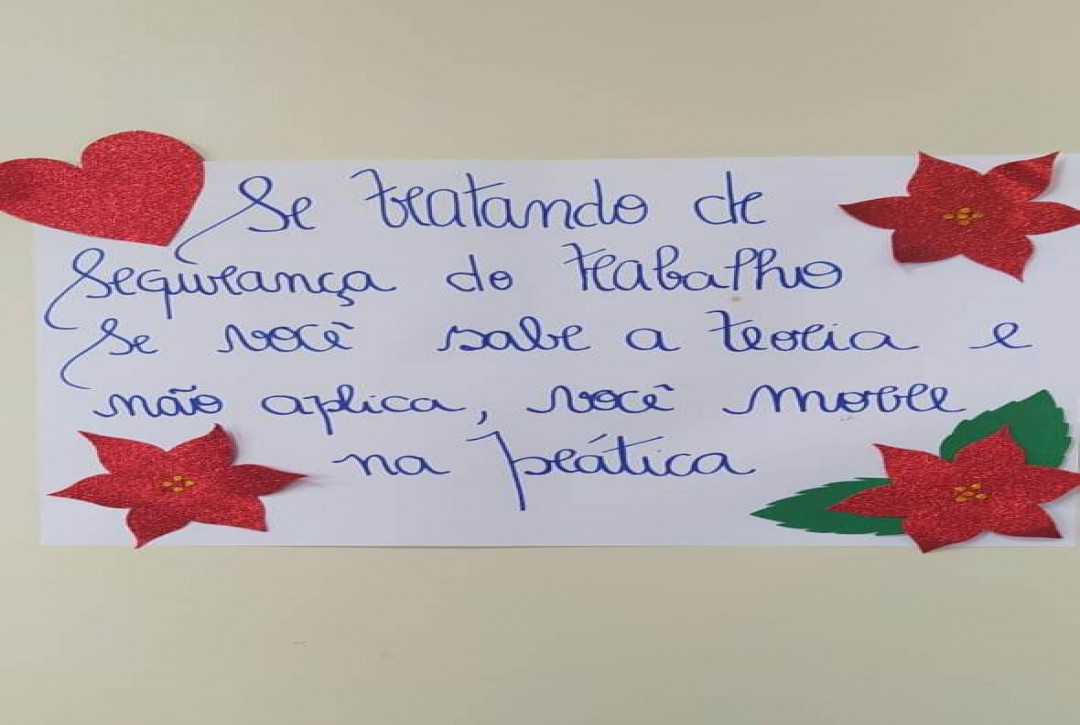 Se tratando de
Segurança do trabalho
Se você sabe a teoria e
não aplica, você morre
na prática